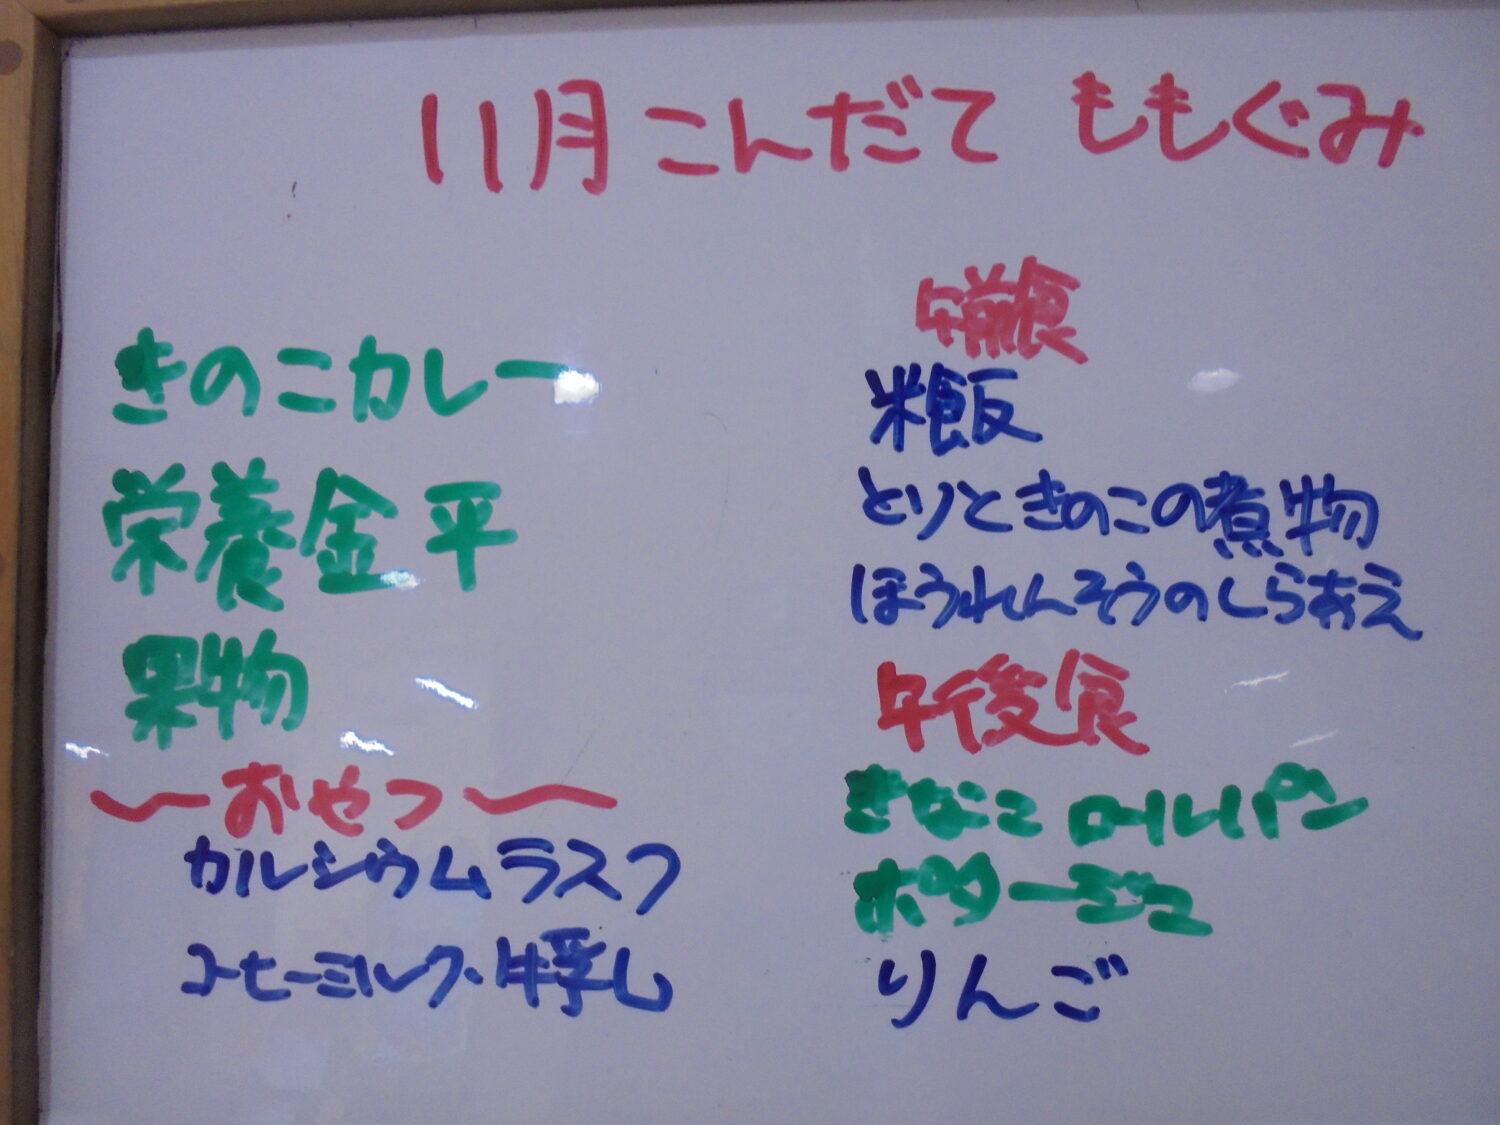 11月 こんだて ももぐみ
きのこカレー
栄養金平
果物
〜おやつ〜
カルシウムラスク
コーヒーミルク・牛乳
午前食
米飯
とりときのこの煮物
ほうれんそうのしらあえ
午後食
きなこロールパン
ポタージュ
りんご